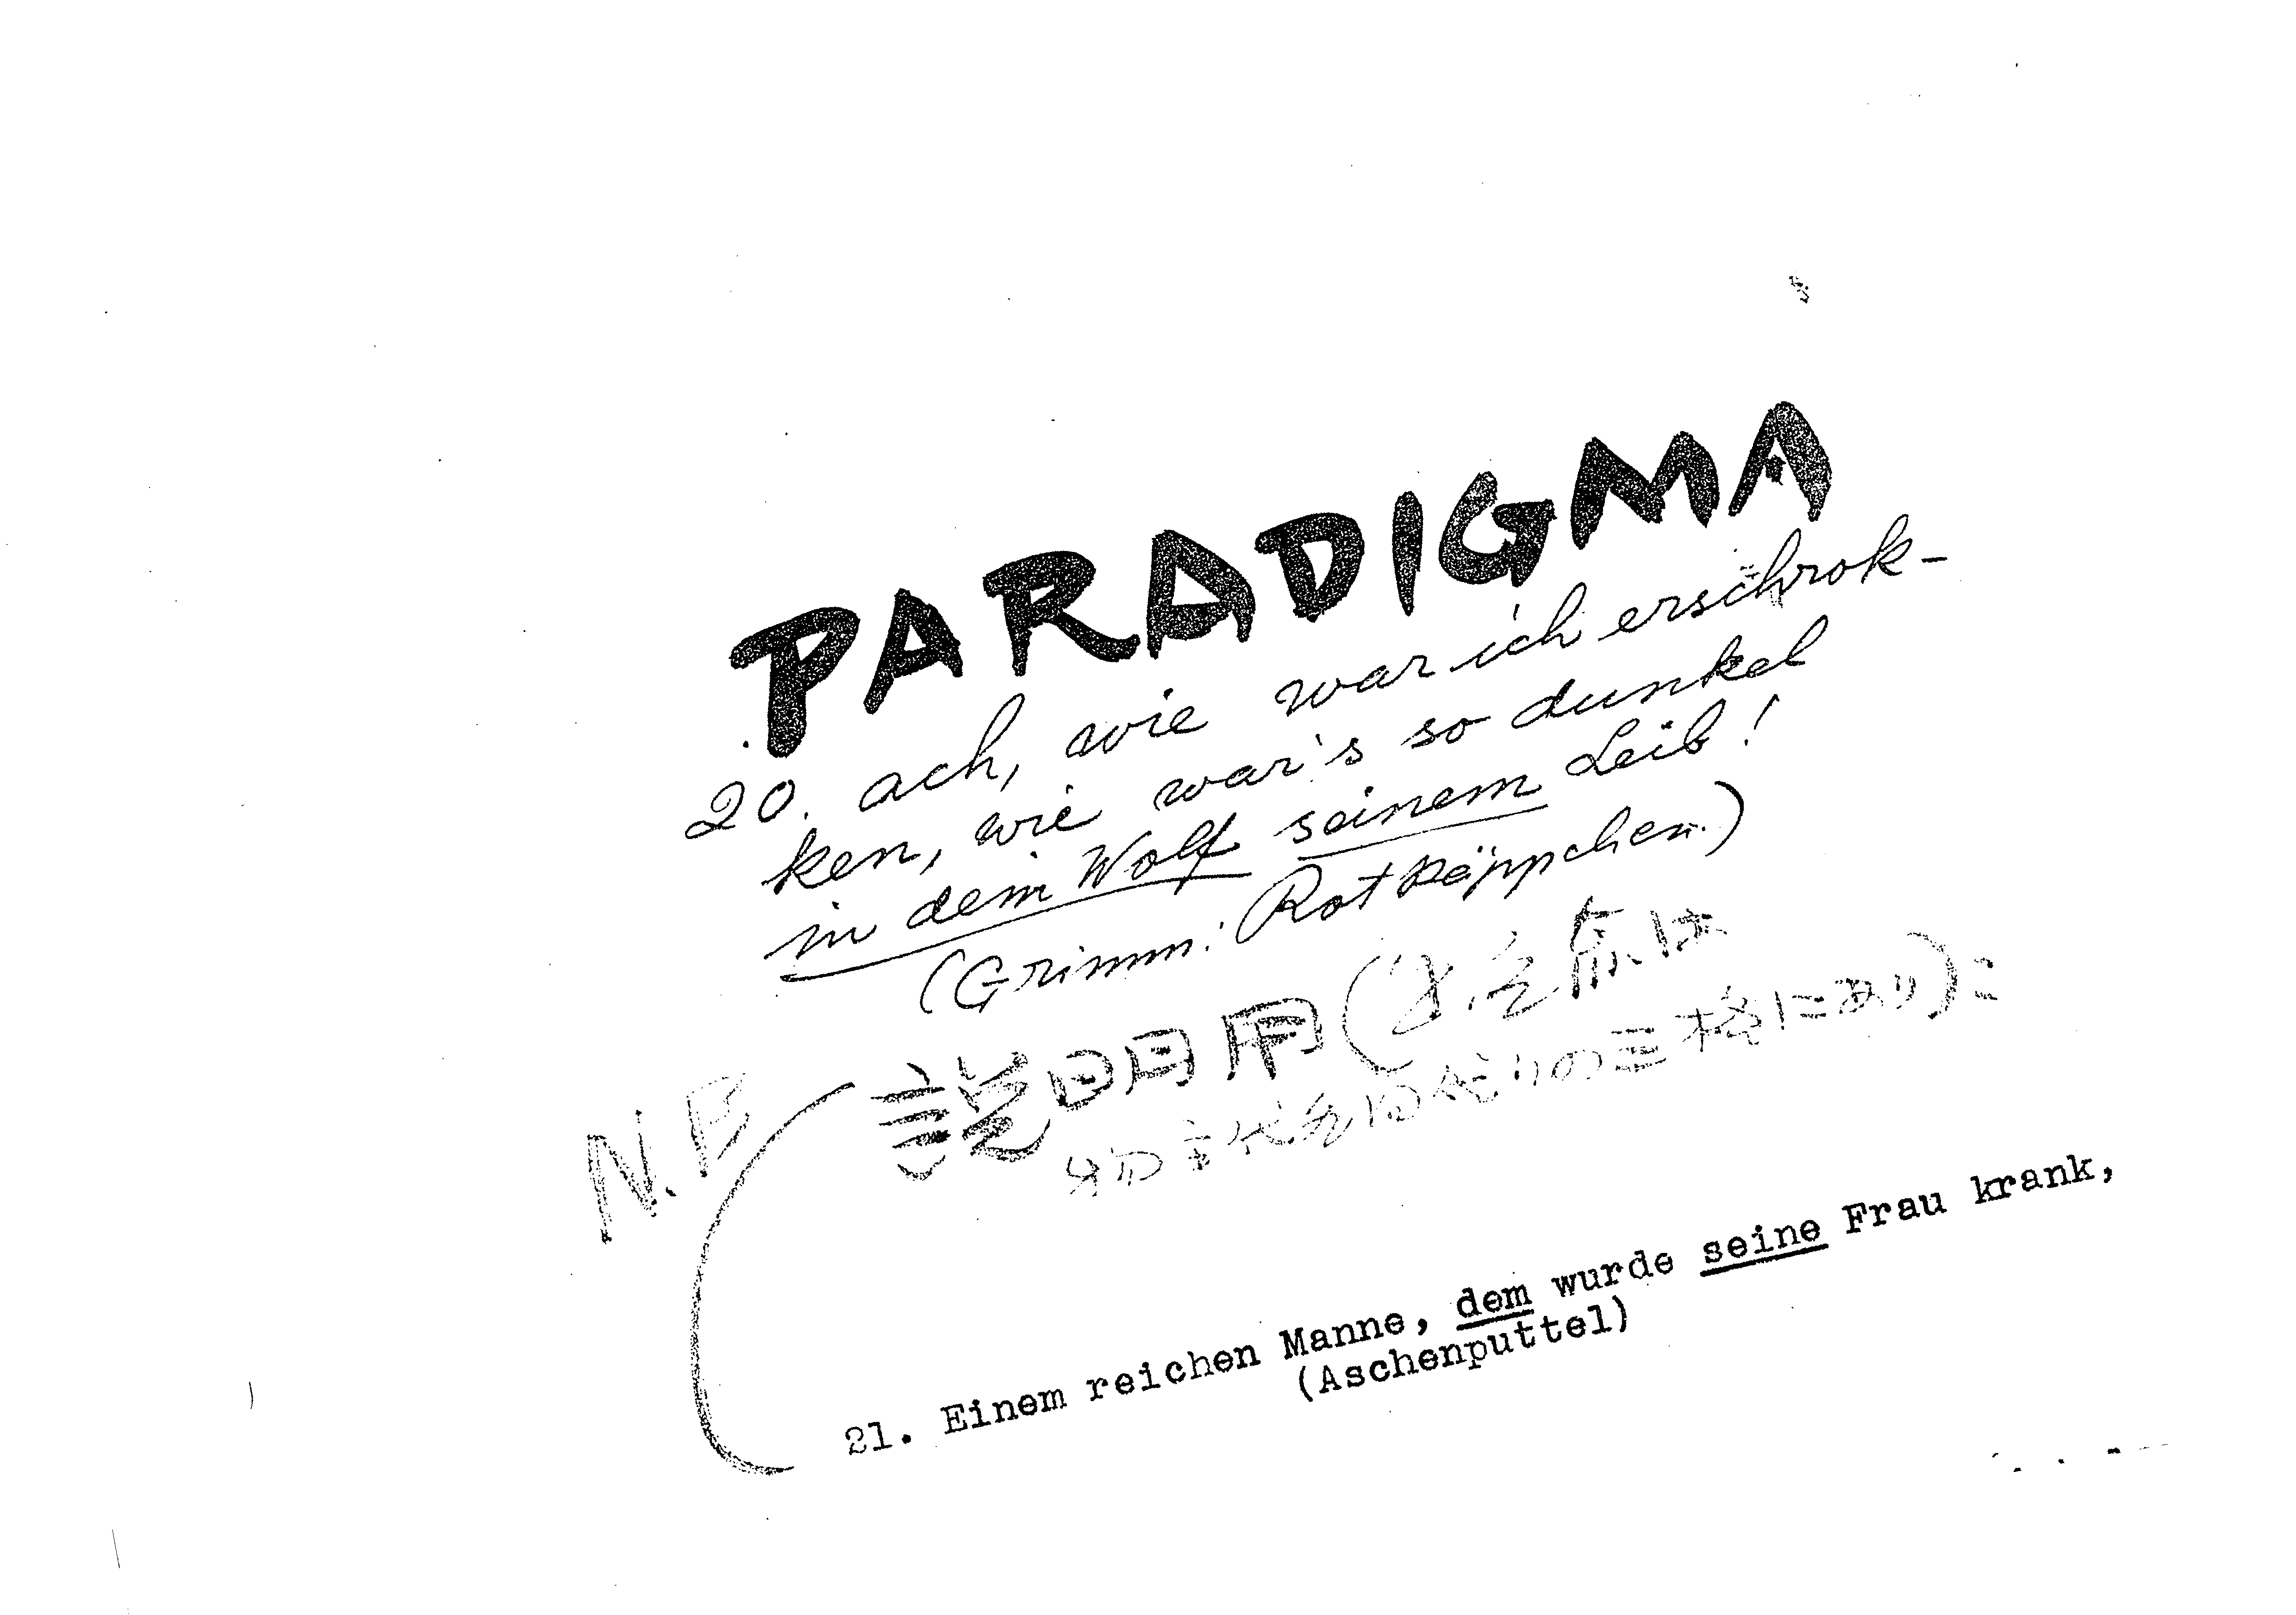 PARADIGMA
20. ach, wie war ich erschrok-
ken, wie war's so dunkel
in dem Wolf seinem Leib!
(Grimm: Rotkäppchen.)
N.B
説明用(
の三格にあり):
21. Einem reichen Manne, dem wurde seine Frau krank,
(Aschenputtel)